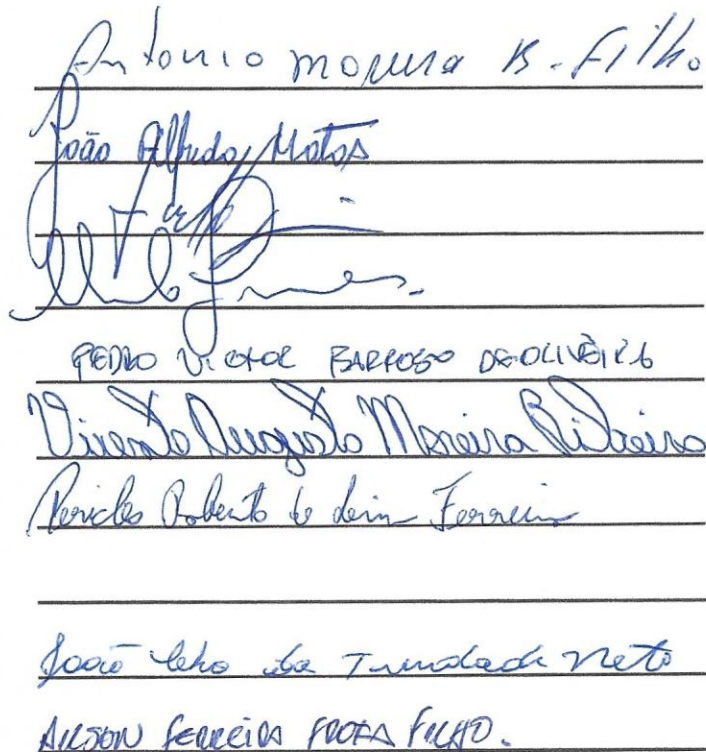 Antonio Moreira B. Filho
João Alfredo Matos
PEDRO VICTOR BARROSO DE OLIVEIRA
Vicente Augusto Moreira Ribeiro
Pericles Roberto de Lima Ferreira
João da Trindade Neto
AILSON FERREIRA FROTA FILHO.